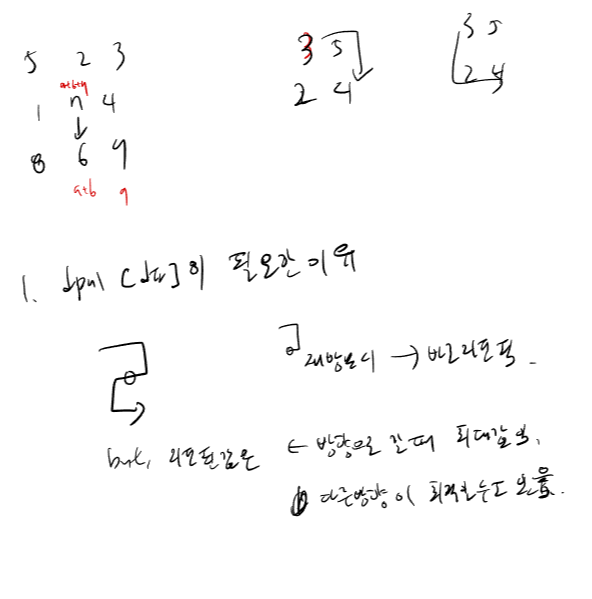 5 2 3
a+b+9
1 n 4
↓
8 6 9
a+b 9
3 5
2 4
3 5
2 4
1. dp[n][dir]이 필요한 이유
재방문시 → 바로 리턴
but, 리턴된 값은 ← 방향으로 갈 때 최대값임,
다른 방향이 최적일 수도 있음.